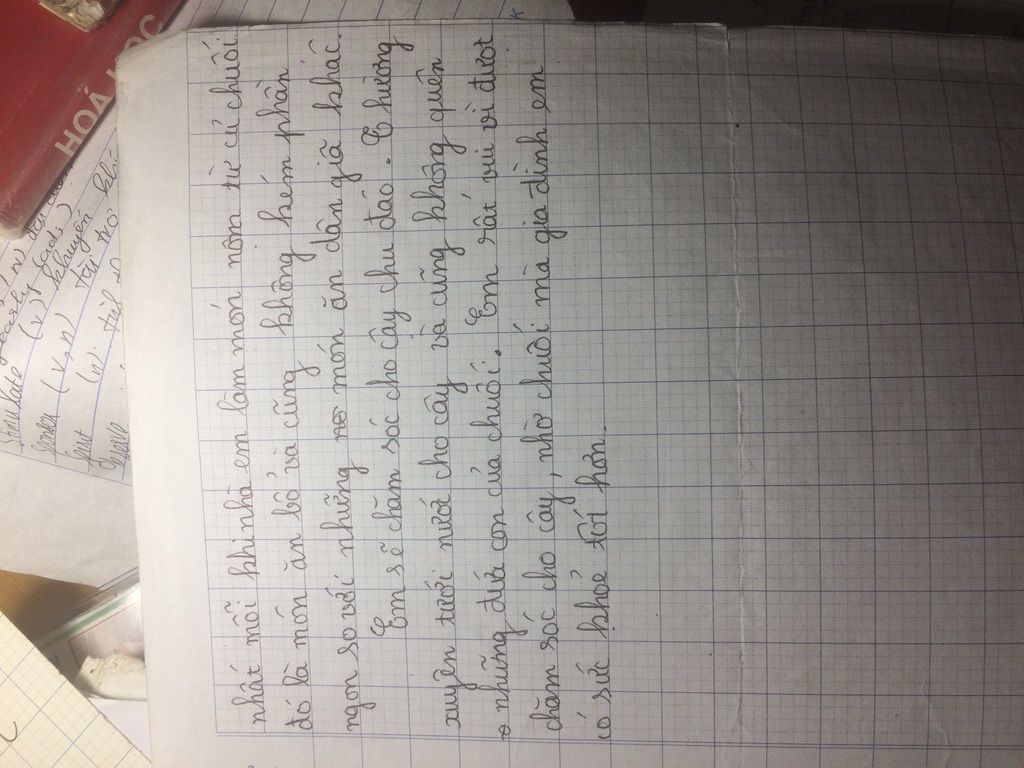 nhất mỗi khi nhà em làm món nộm từ củ chuối
đó là món ăn bổ và cũng không kém phần
ngon so với những mo món ăn dân giã khác.
Em sẽ chăm sóc cho cây chu đáo. Thương
xuyên tưới nước cho cây và cũng không quên
những đứa con của chuối. Em rất vui vì được
chăm sóc cho cây, nhờ chuối mà gia đình em
có sức khỏe tốt hơn.
HOÁ HỌC